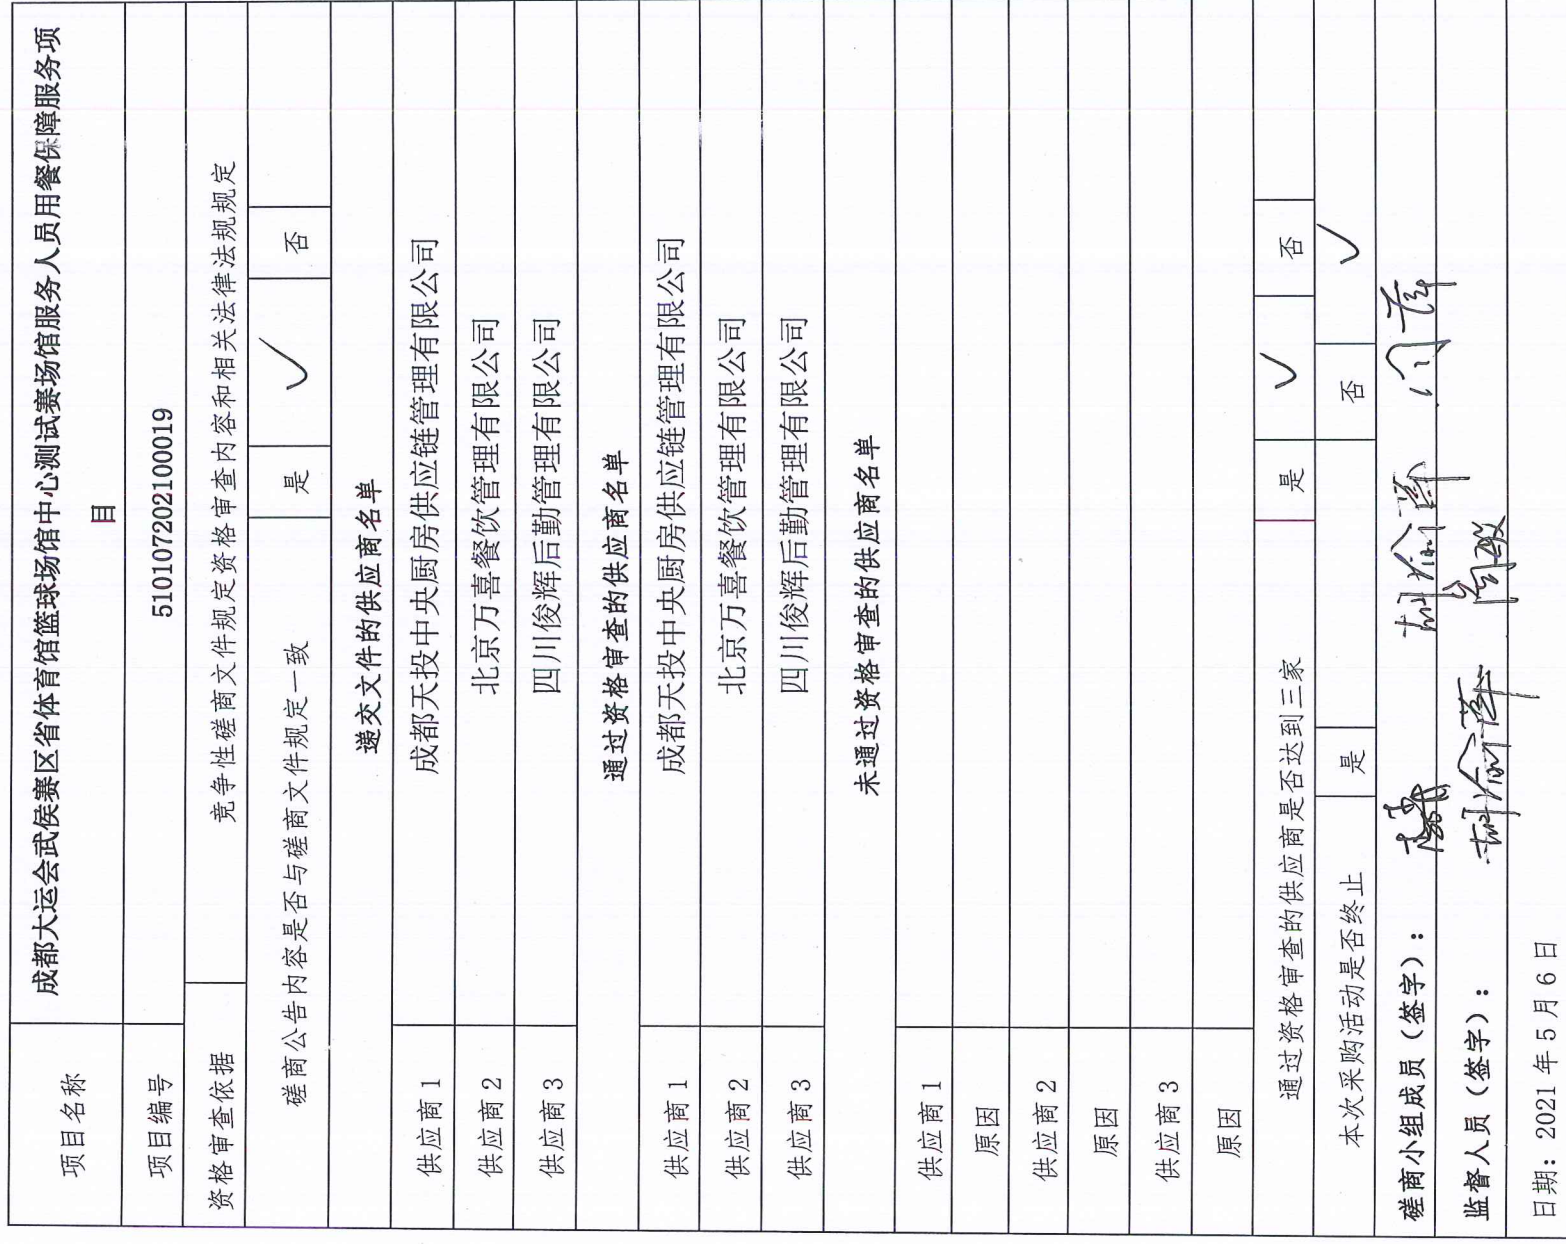 项目名称 成都大运会武侯赛区省体育馆篮球场馆中心测试赛场馆服务人员用餐保障服务项
目
项目编号 510107202100019
资格审查依据 竞争性磋商文件规定资格审查内容和相关法律法规规定
磋商公告内容是否与磋商文件规定一致 是 ✓ 否
递交文件的供应商名单
供应商 1 成都天投中央厨房供应链管理有限公司
供应商 2 北京万喜餐饮管理有限公司
供应商 3 四川俊辉后勤管理有限公司
通过资格审查的供应商名单
供应商 1 成都天投中央厨房供应链管理有限公司
供应商 2 北京万喜餐饮管理有限公司
供应商 3 四川俊辉后勤管理有限公司
未通过资格审查的供应商名单
供应商 1
原因
供应商 2
原因
供应商 3
原因
通过资格审查的供应商是否达到三家 是 ✓ 否
本次采购活动是否终止 是 否 ✓
磋商小组成员（签字）：
监督人员（签字）：
日期：2021 年 5 月 6 日